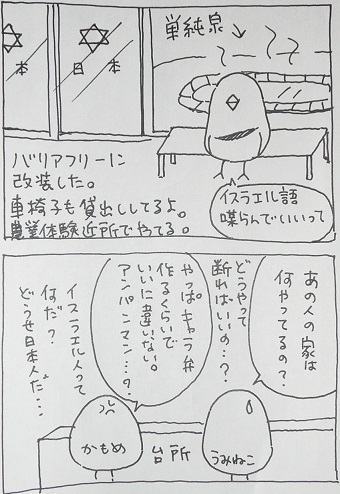 単純泉
本
日
本
バリアフリーに
改装した。
車椅子も貸出ししてるよ。
農業体験近所でやってる。
イスラエル語
喋らんでいいって
あの人の家は
何やってるの?
どうやって
断ればいいの…?
やっぱキャラ弁
作るくらいで
いいに違いない。
アンパンマン…?
イスラエル人って
何だ?
どうせ日本人だ…
かもめ
台所
うみねこ